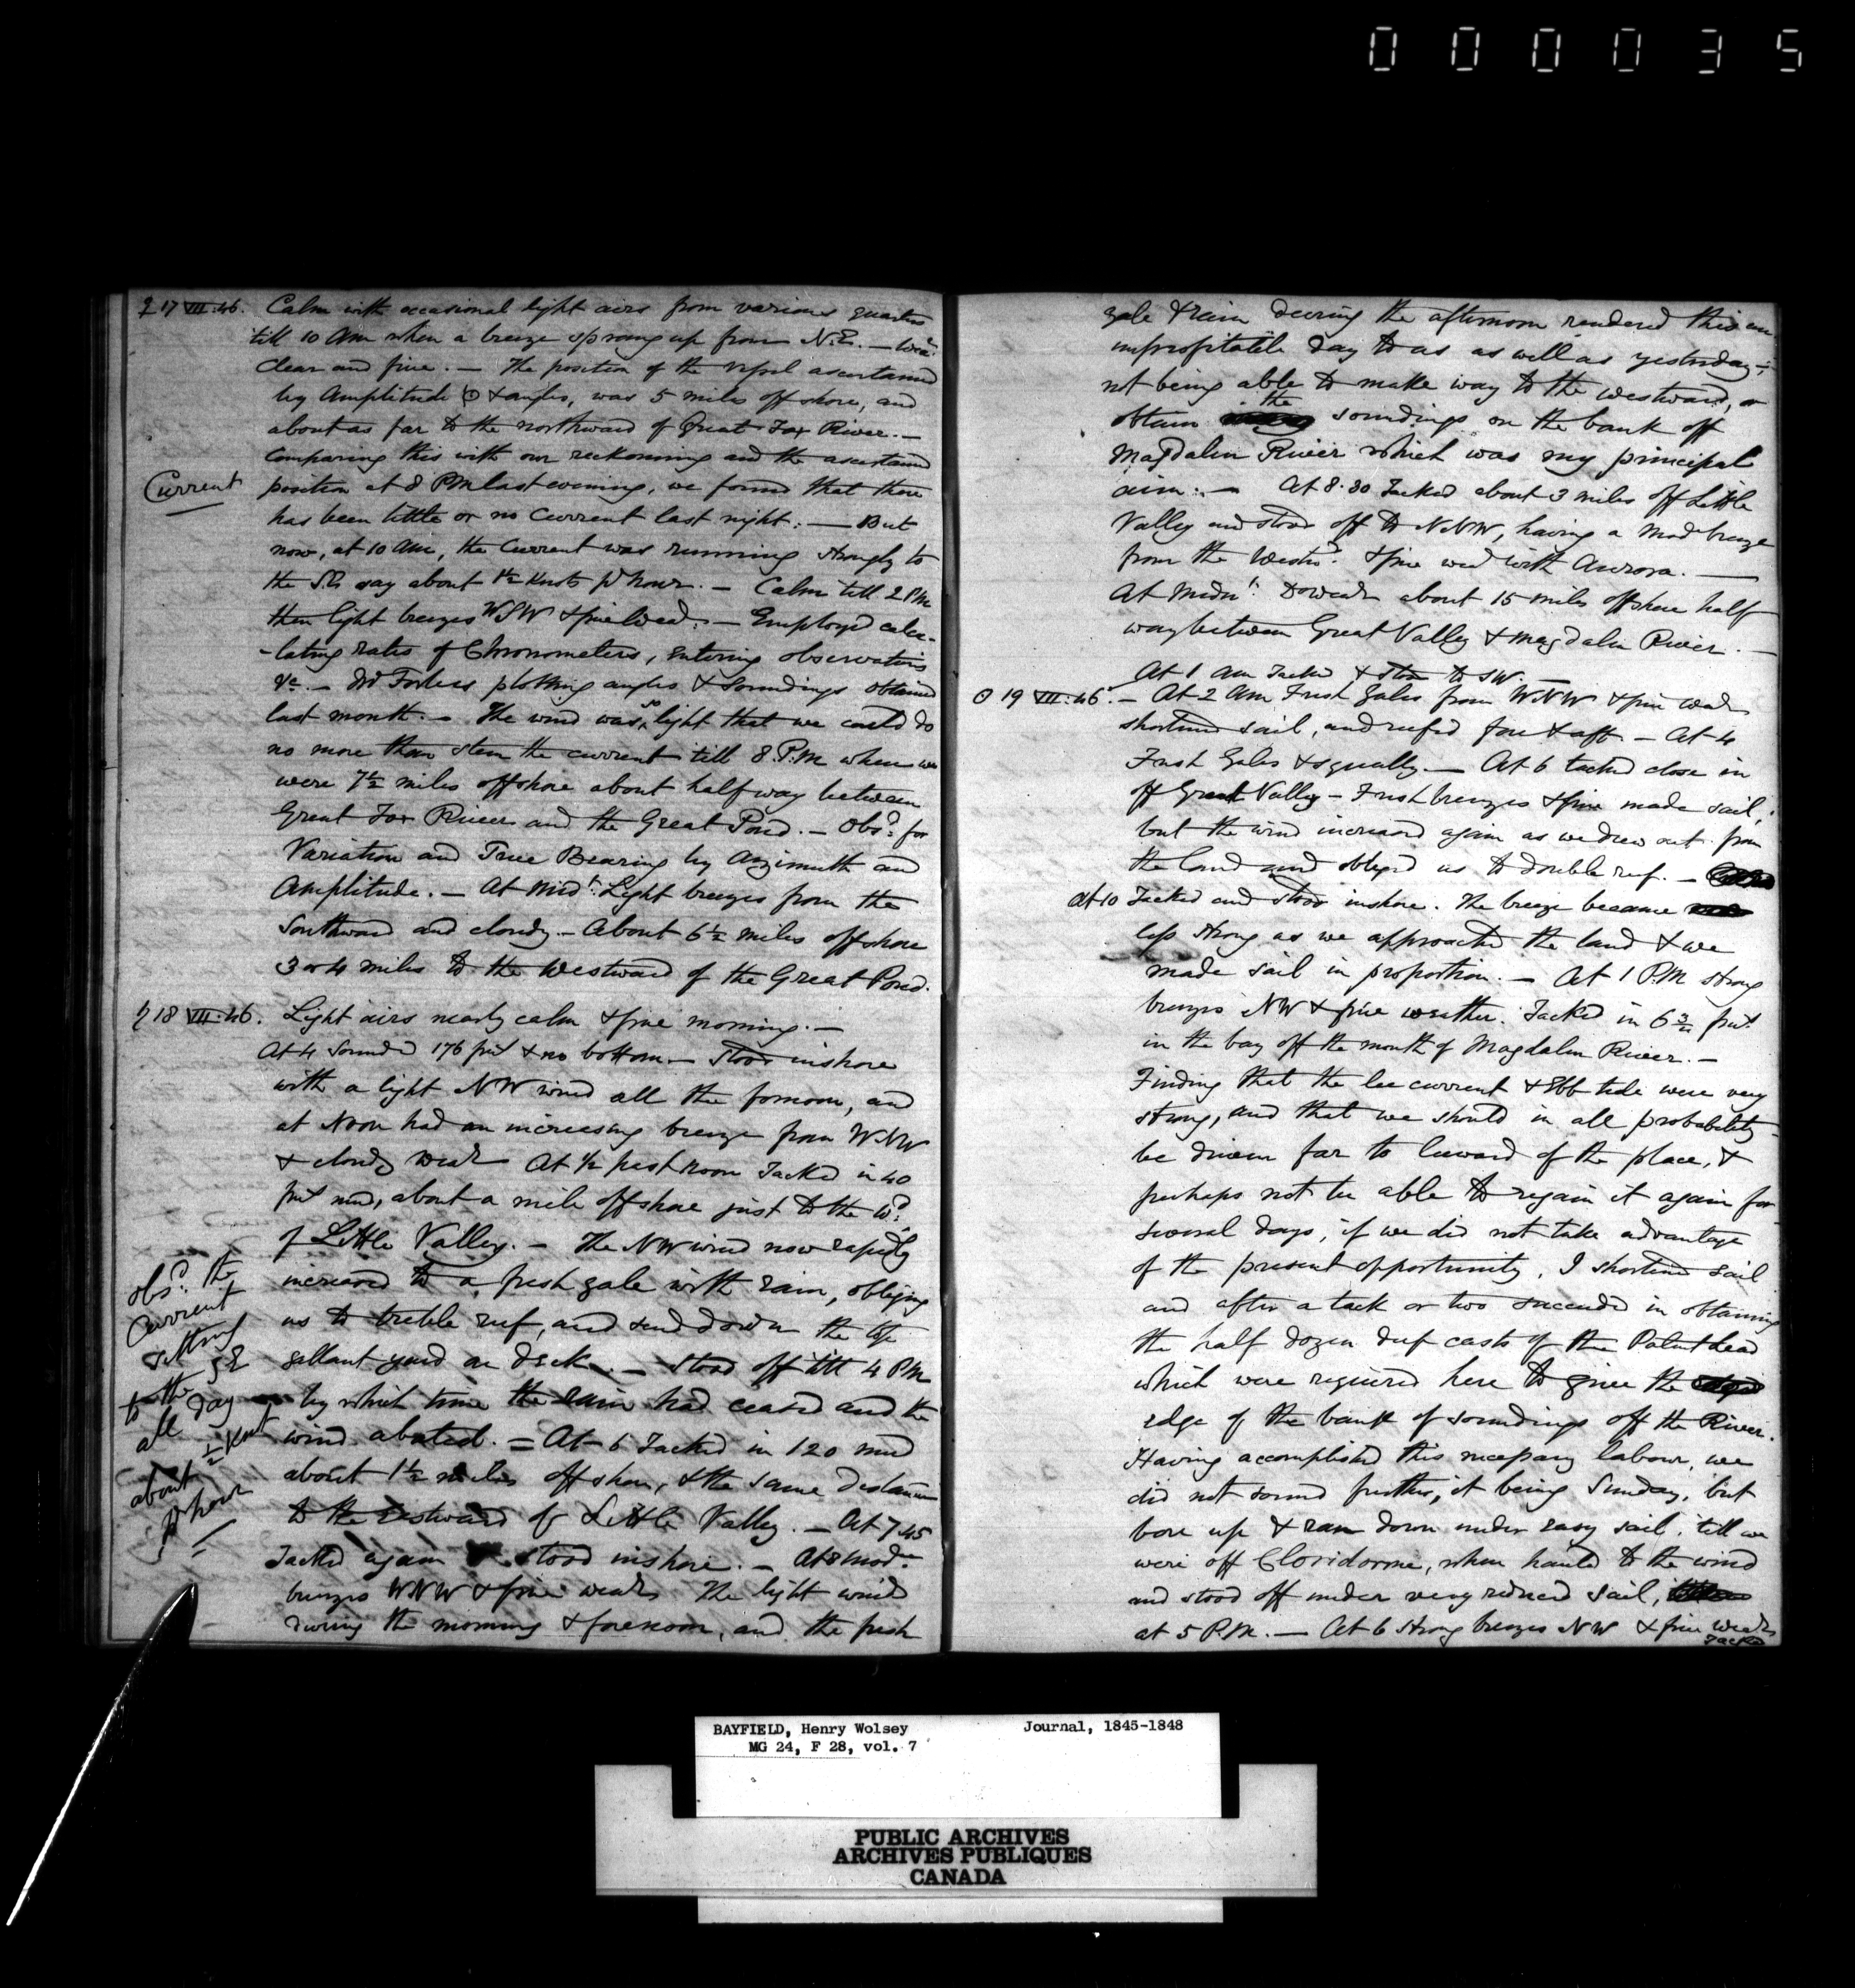 000035
♀ 17 VII.46. Calm with occasional light airs from various quarters
till 10 AM when a breeze sprang up from N.E. — Wear
clear and fine. — The position of the vessel ascertained
by Amplitude ☉ & angles, was 5 miles off shore, and
about as far to the northward of Great Fox River. —
Comparing this with our reckonning and the ascertained
Current
position at 8 PM last evening, we found that there
has been little or no Current last night: — But
now, at 10 AM, the Current was running strongly to
the SE say about 1½ Knots p hour. — Calm till 2 PM
then light breezes WSW & fine Wear. — Employed calcu-
-lating rates of Chronometers, entering observations
&c. — Dr Forbes plotting angles & Soundings obtained
last month. — The wind was so light that we could do
no more than stem the current till 8 P.M when we
were 7½ miles offshore about half way between
Great Fox River and the Great Pond. — Obsd. for
Variation and True Bearing by Azimuth and
Amplitude. — At Midt. Light breezes from the
Southward and cloudy — About 6½ miles offshore
3 or 4 miles to the Westward of the Great Pond.
♄ 18 VII.46. Light airs nearly calm & fine morning. —
At 4 Sounded 176 fms & no bottom — Stood inshore
with a light NW wind all the forenoon, and
at Noon had an increasing breeze from WNW
& cloudy Wear At ½ past noon Tacked in 40
fms mud, about a mile offshore just to the Wd.
of Little Valley. — The NW wind now rapidly
increased to a fresh gale with rain, obliging
us to treble reef, and send down the top
gallant yard on deck. — Stood off till 4 PM
by which time the rain had ceased and the
wind abated. = At 6 Tacked in 120 mud
about 1½ miles off shore, & the same distance
to the Eastward of Little Valley. — At 7.45
Tacked again stood inshore. — At 8 Modte
breezes WNW & fine wear The light winds
during the morning & forenoon, and the fresh
obsd. the
Current
setting
to the SE
all day
about ½ Knot
p hour
gale & rain during the afternoon rendered this an
unprofitable day to us as well as yesterday;
not being able to make way to the westward, or
obtain the soundings on the bank off
Magdalen River which was my principal
aim: — At 8.30 Tacked about 3 miles off Little
Valley and stood off to NNW, having a mod breeze
from the Westwd. & fine wear with Aurora. —
At Midnt. Do wear about 15 miles offshore half
way between Great Valley & Magdalen River. —
At 1 AM Tacked & stood to SW.
☉ 19 VII.46. — At 2 AM Fresh Gales from WNW & fine Wear
shortened sail, and reefed fore & aft — At 4
Fresh Gales & squally. — At 6 tacked close in
off Great Valley — Fresh breezes & fine made sail,
but the wind increased again as we drew out from
the land and obliged us to double reef. —
At 10 Tacked and stood inshore. The breeze became
less strong as we approached the land & we
made sail in proportion. — At 1 P.M strong
breezes NW & fine weather. Tacked in 6¾ fms
in the bay off the mouth of Magdalen River. —
Finding that the lee current & Ebb tide were very
strong, and that we should in all probability
be driven far to leeward of the place, &
perhaps not be able to regain it again for
several days, if we did not take advantage
of the present opportunity, I shortened sail
and after a tack or two succeeded in obtaining
the half dozen deep casts of the Patent lead
which were required here to give the
edge of the bank of soundings off the River.
Having accomplished this necessary labour, we
did not sound further, it being Sunday, but
bore up & ran down under easy sail, till we
were off Cloridorme, when hauled to the wind
and stood off under very reduced sail,
at 5 P.M. — At 6 Strong breezes NW & fine wear
Tacked
BAYFIELD, Henry Wolsey Journal, 1845-1848
MG 24, F 28, vol. 7
PUBLIC ARCHIVES
ARCHIVES PUBLIQUES
CANADA